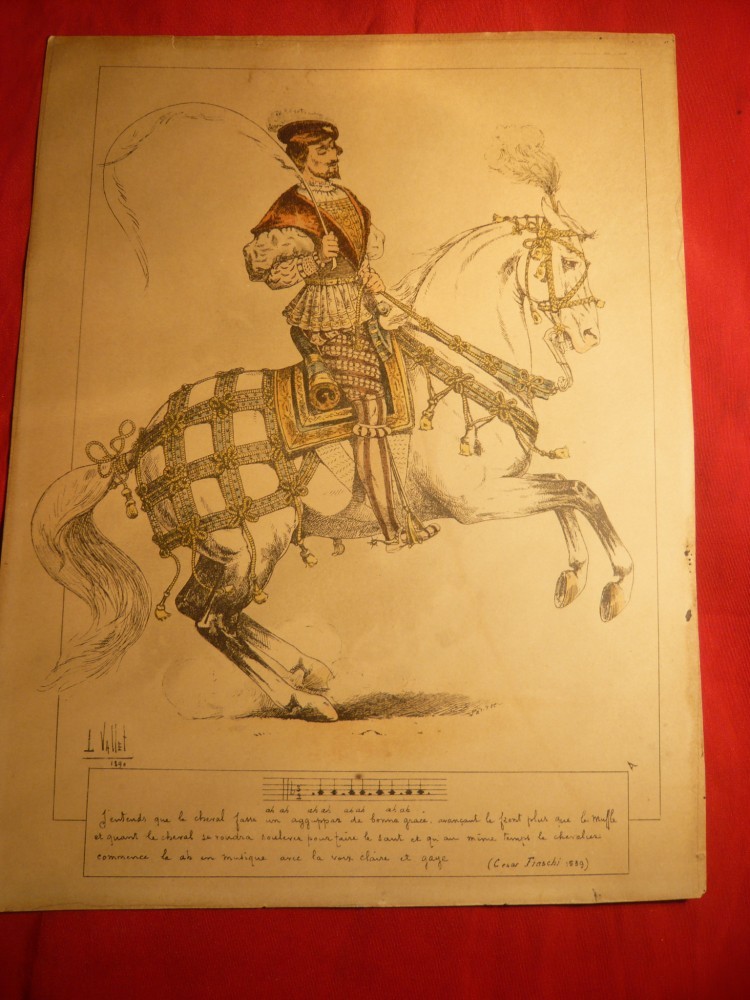 L Vallet
1890
ah ah ah ah ah ah ah ah
J'entends que le cheval fasse un de bonne grace, avançant le front plus que le muffle
et quant le cheval se voudra soulever pour faire le saut et qu au même temps le chevalier
commence le ah en musique avec la voix claire et gaye (Cesar Fiaschi 1539)